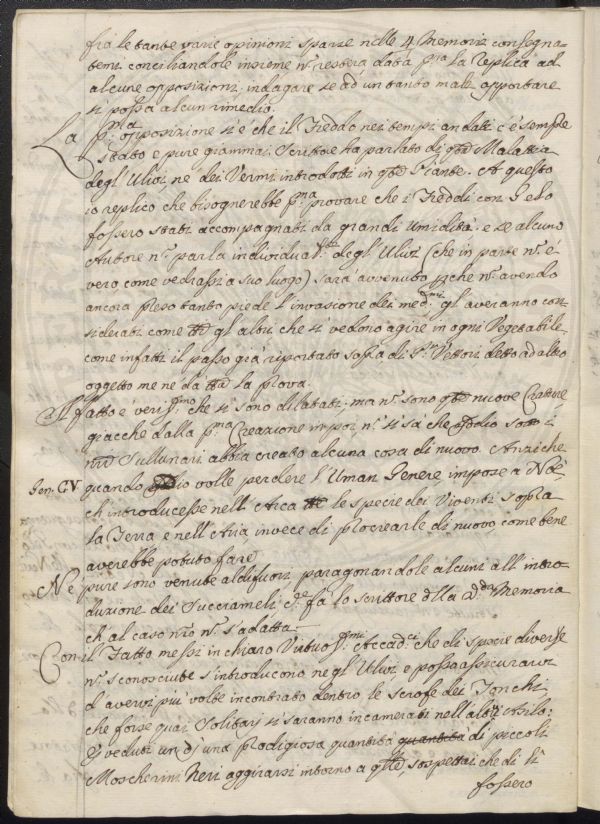 fra le tante varie opinioni sparse nelle 4 Memorie consegna=
temi conciliandole insieme ne resterà data pma la Replica ad
alcune opposizioni, indagare se ad un tanto male apportare
si possa alcun rimedio.
La pma opposizione si è che il Freddo nei tempi andati c'è sempre
stato e pure giammai Scrittore ha parlato di qta Malattia
degl'Ulivi, nè dei Vermi introdotti in qte Piante. A questo
io replico che bisognerebbe pma provare che i Freddi con Gelo
fossero stati accompagnati da grandi Umidità, e se alcuno
Autore no parla degl'Ulivi (che in parte no è
vero come vedrassi a suo luogo) sarà avvenuto che no avendo
ancora preso tanto piede l'invasione dei medmi gl'averanno con
siderati come gl'altri che si vedono agire in ogni Vegetabile
come infatti il passo già riportato sopra di Vettori detto ad altro
oggetto me ne dà tta la prova.
Il fatto è verismo che si sono dilatati; ma no sono qte nuove Creature
giacche dalla pma Creazione in poi no si sà che Iddio
Sullunari abbia creato alcuna cosa di nuovo. Anziche
Gen. CV quando Iddio volle perdere l'Uman Genere, impose a Noè
ch'introducesse nell'Arca le specie dei Viventi sopra
la Terra e nell'Aria invece di procrearle di nuovo, come bene
averebbe potuto fare
Nè pure sono venute al di fuori, paragonandole alcuni all'intro=
duzione dei Succiameli, Ce fa lo scrittore dlla da Memoria
ch'al caso nro no s'adatta.
Con il Fatto messi in chiaro Virtuosmi Accadci che di specie diverse
no sconosciute s'introducono negl'Ulivi e possa assicurarvi
d'avervi più volte incontrato dentro le scrofe dei Tronchi,
che forse quai Solitarj si saranno incamerati nell'altri Asilo:
Ej veduti un dì una prodigiosa quantità quantità di piccoli
Moscherini Neri aggirarsi intorno a qlle, sospettai che di lì
fossero